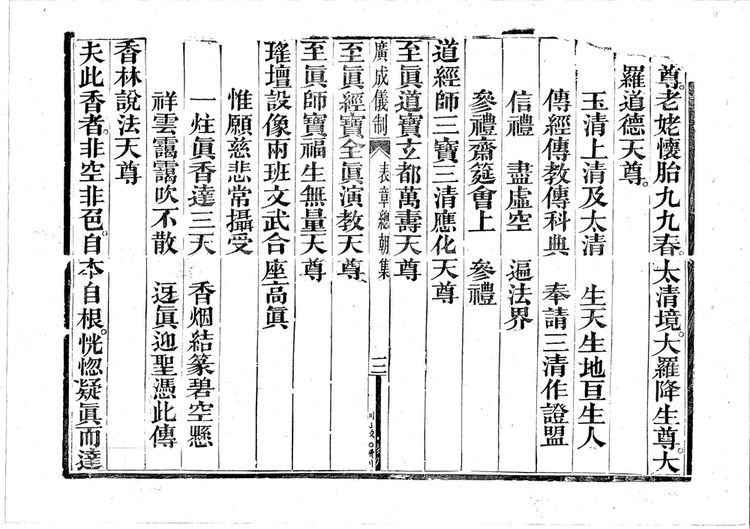 尊。老姥懷胎九九春。太清境。大羅降生尊。大
羅道德天尊。
玉清上清及太清　生天生地亘生人
傳經傳教傳科典　奉請三清作證盟
信禮　盡虛空　遍法界
參禮齋筵會上　參禮
道經師三寶三清應化天尊
至眞道寶玄都萬壽天尊
廣成儀制　表章總朝集　二
至眞經寶全眞演教天尊
至眞師寶福生無量天尊
瑤壇設像兩班文武合座高眞
惟願慈悲常攝受
一炷眞香達三天　香烟結篆碧空懸
祥雲靄靄吹不散　迓眞迎聖憑此傳
香林說法天尊
夫此香者。非空非色。自本自根。恍惚疑眞而達